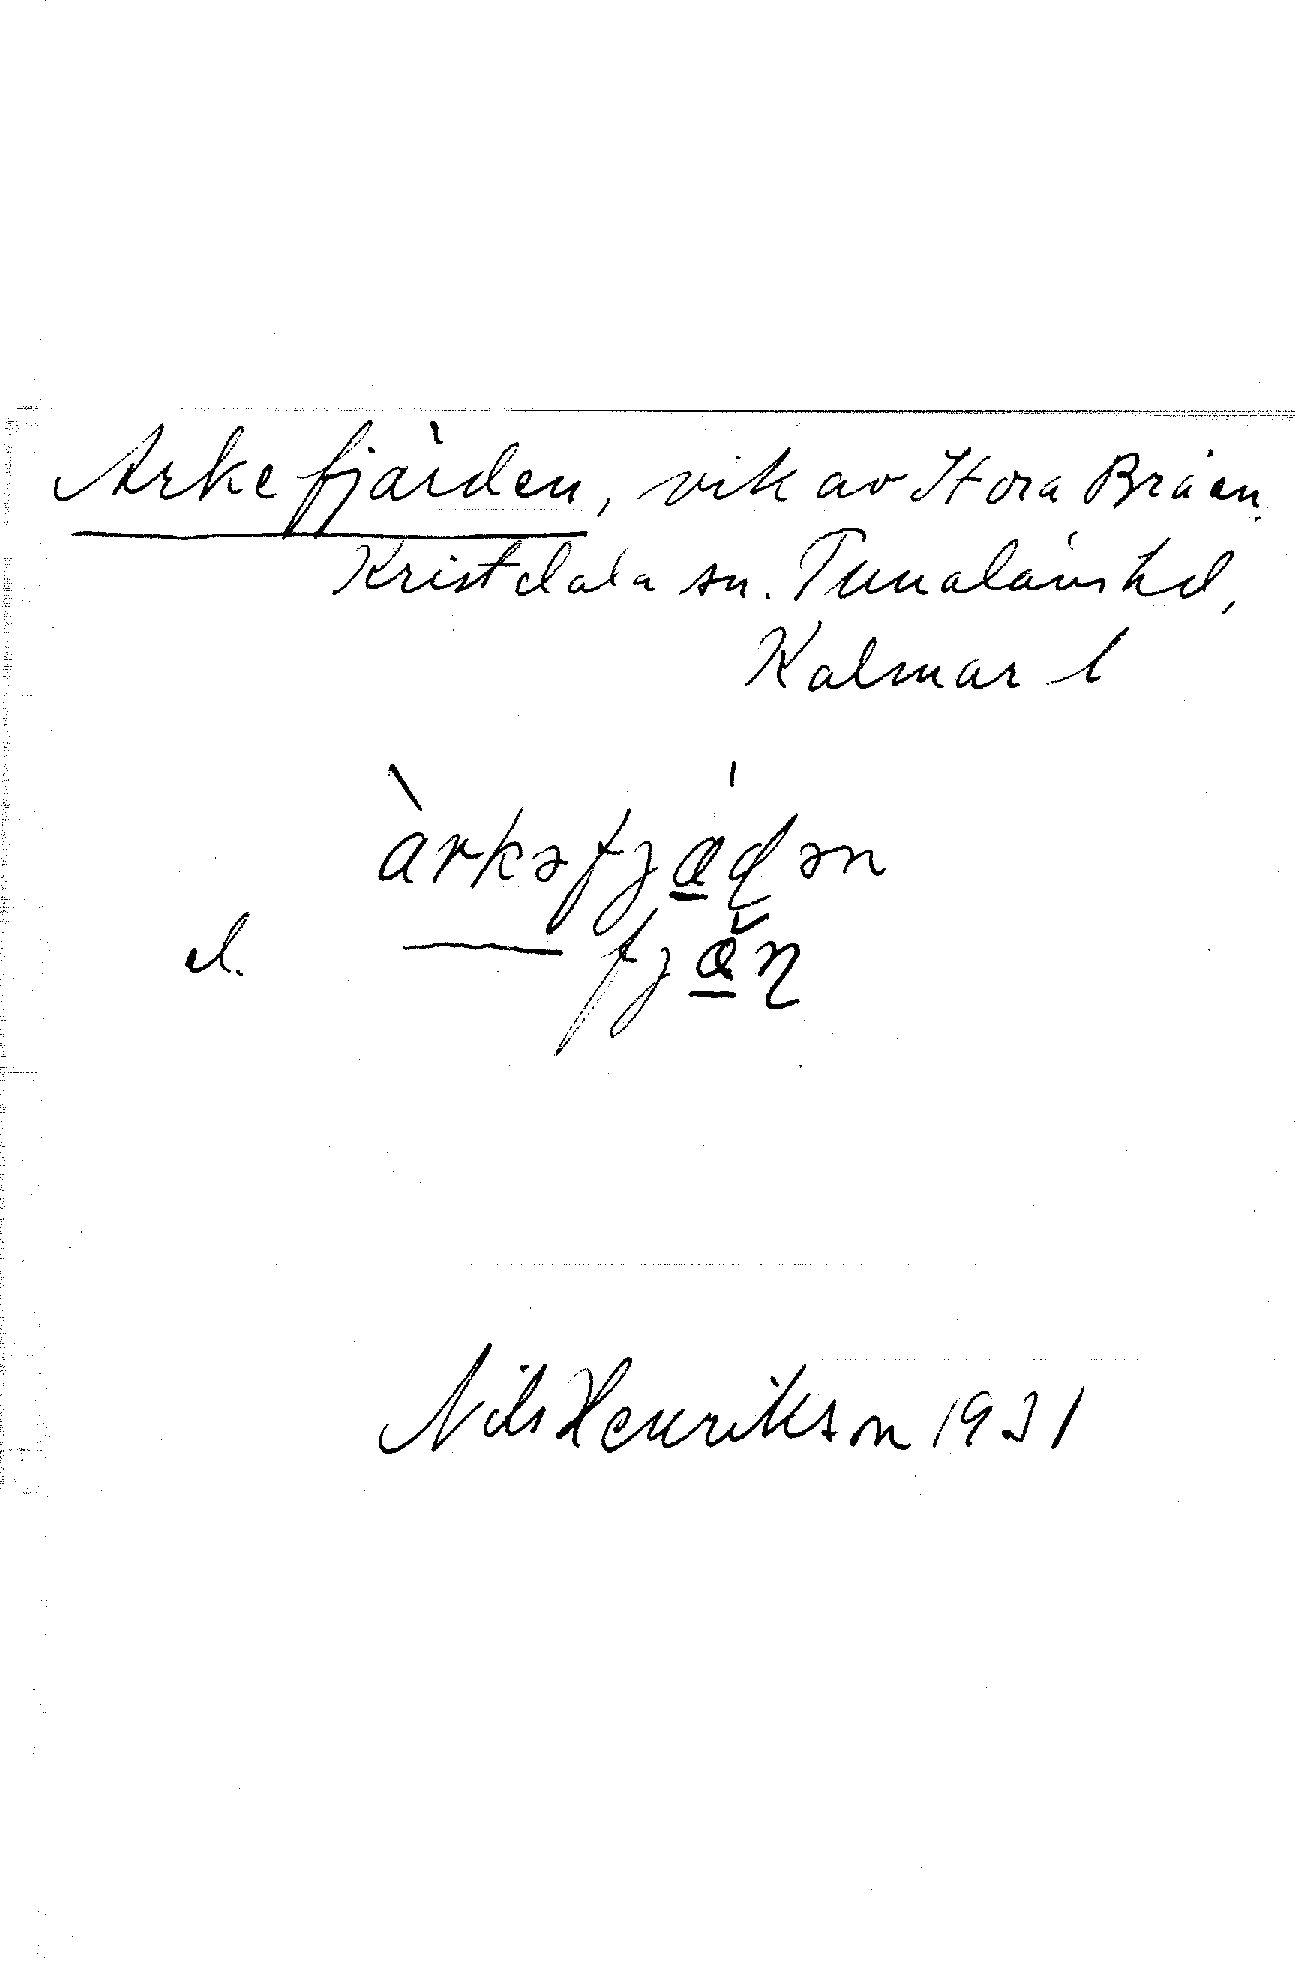 Arkefjärden, vik av Stora Bråen.
Kristdala sn. Tunaläns hd,
Kalmar l
àrkəfjæ̱ɖən
el. — fjæ̱̆ɳ
Nils Henrikson 1931